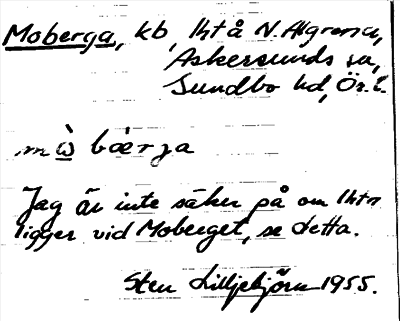 Moberga, kb, lht å N. Algrena,
Askersunds sn,
Sundbo hd, Ör. l.
mὼ bærga
Jag är inte säker på om lhtn
ligger vid Moberget, se detta.
Sten Lilljebjörn 1955.